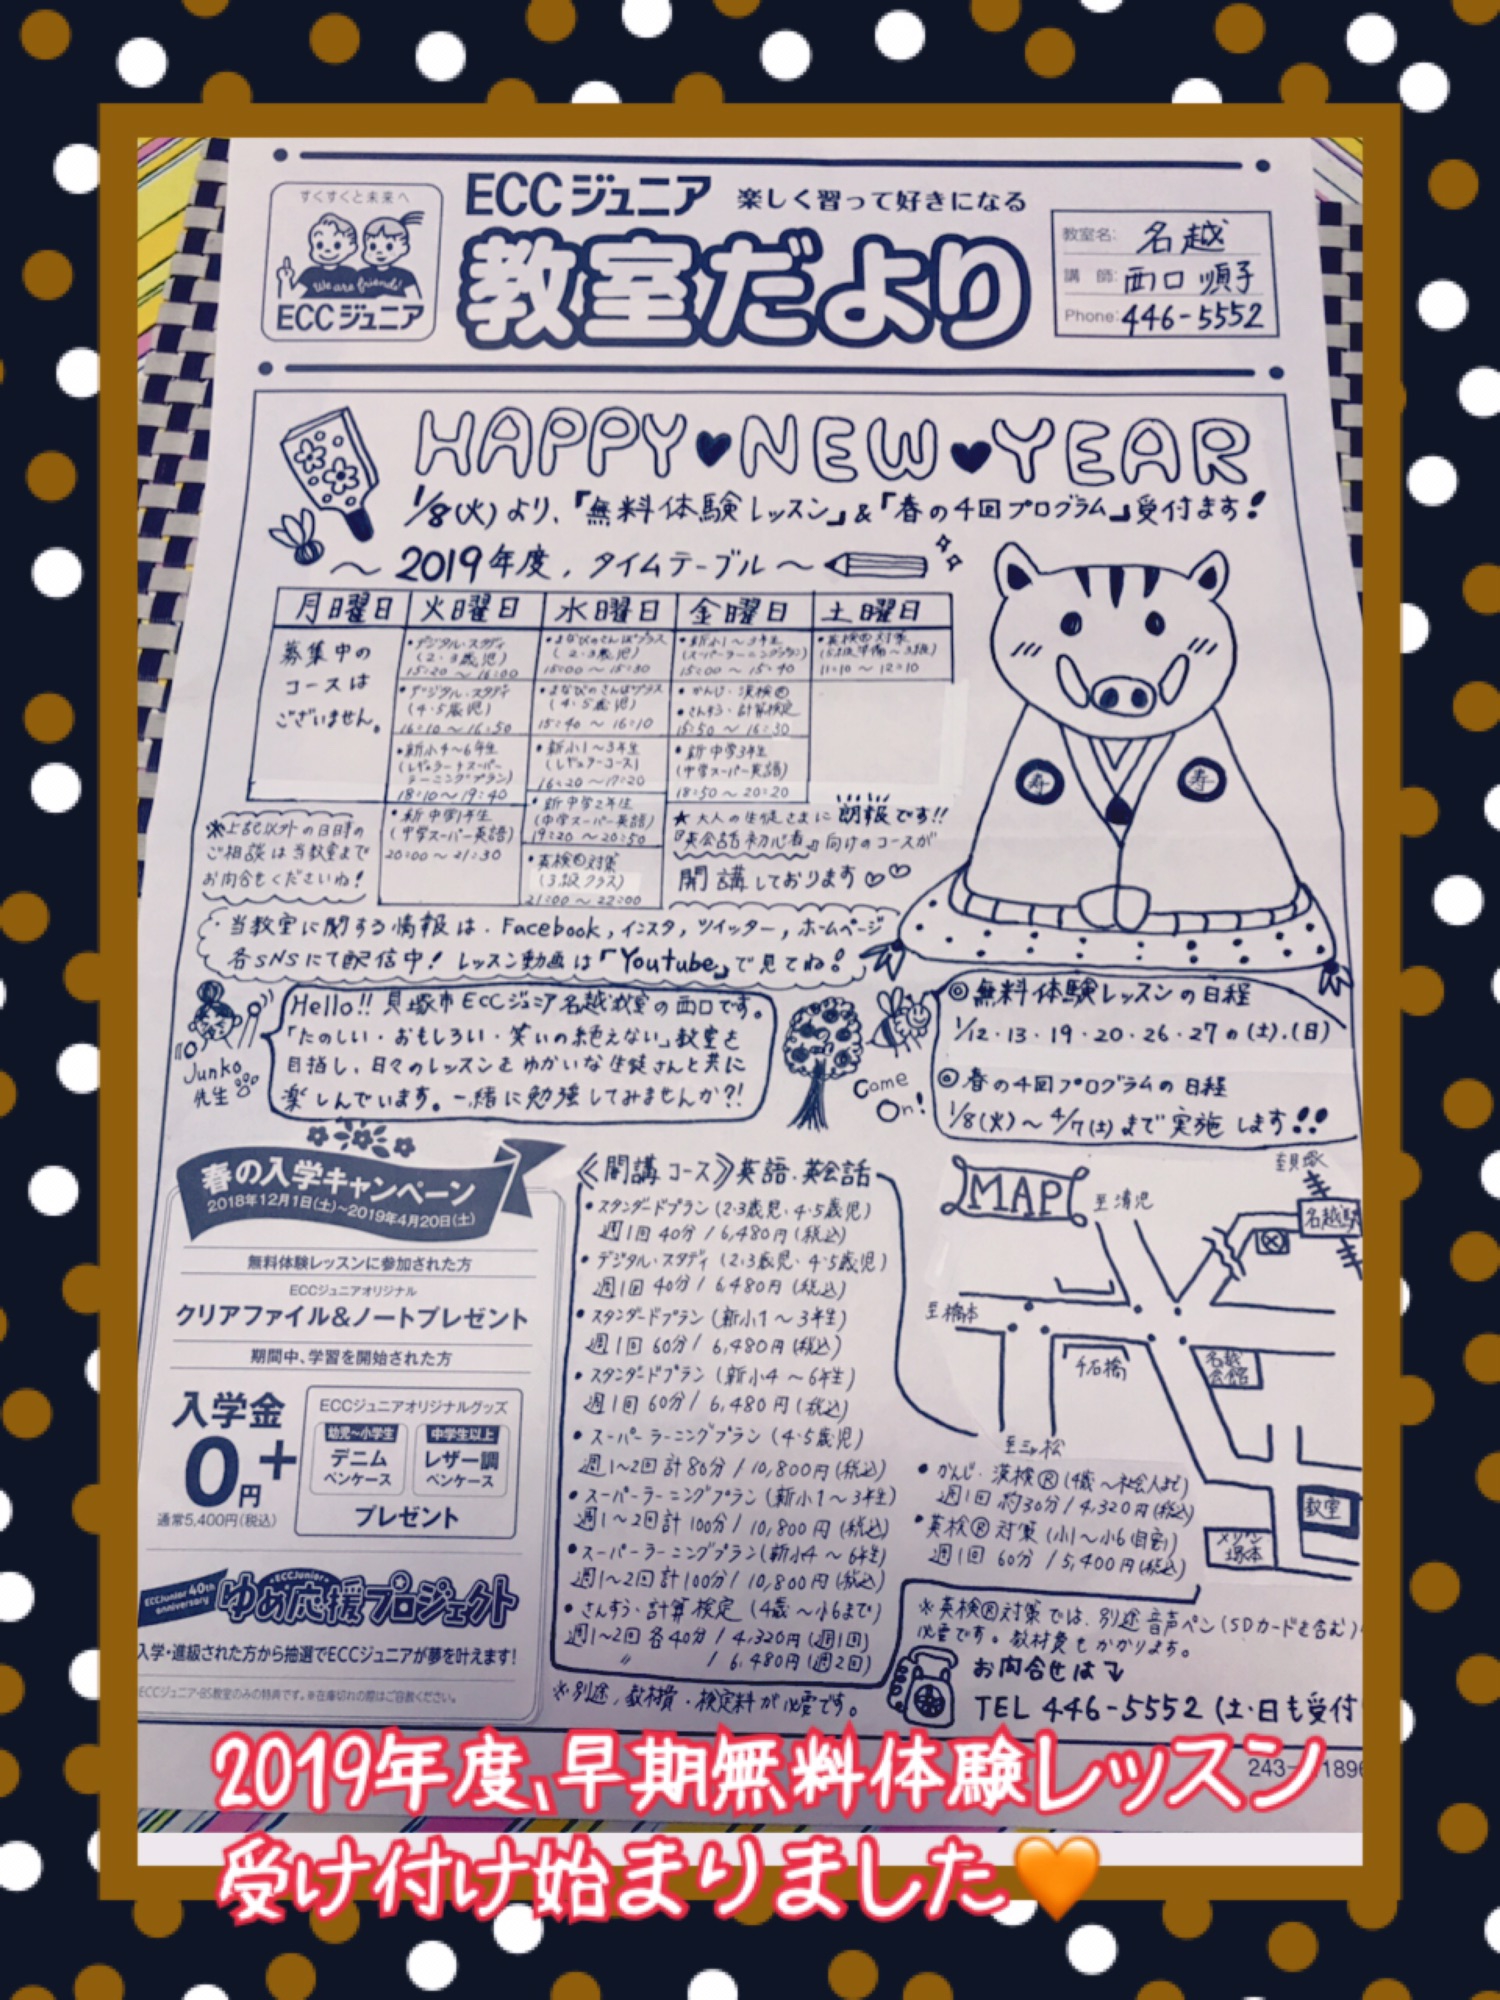 すくすくと未来へ
We are friends!
ECCジュニア
ECCジュニア 楽しく習って好きになる
教室だより
教室名: 名越
講師: 西口 順子
Phone: 446-5552
HAPPY♥NEW♥YEAR
1/8(火)より、「無料体験レッスン」&「春の4回プログラム」受付ます!
～2019年度,タイムテーブル～
月曜日 火曜日 水曜日 金曜日 土曜日
募集中の
コースは
ございません。
・デジタル・スタディ
(2・3歳児)
15:20～16:00
・デジタル・スタディ
(4・5歳児)
16:10～16:50
・新小4～6年生
(レギュラー+スーパー
ラーニングプラン)
18:10～19:40
・新中学1年生
(中学スーパー英語)
20:00～21:30
・まなびのさんぽプラス
(2・3歳児)
15:00～15:30
・まなびのさんぽプラス
(4・5歳児)
15:40～16:10
・新小1～3年生
(レギュラーコース)
16:20～17:20
・新中学2年生
(中学スーパー英語)
19:20～20:50
・英検®対策
(3級クラス)
21:00～22:00
・新小1～3年生
(スーパーラーニングプラン)
15:00～15:40
・かんじ・漢検®
・さんすう・計算検定
15:50～16:30
・新中学3年生
(中学スーパー英語)
18:50～20:20
・英検®対策
11:10～12:10
※上記以外の日時の
ご相談は当教室まで
お問合せくださいね!
★大人の生徒さまに朗報です!!
『英会話初心者』向けのコースが
開講しております♡♡
・当教室に関する情報は、Facebook,インスタ,ツイッター,ホームページ
各SNSにて配信中! レッスン動画は「Youtube」で見てね!
Junko
先生
Hello!! 貝塚市ECCジュニア名越教室の西口です。
「たのしい・おもしろい・笑いの絶えない」教室を
目指し、日々のレッスンをゆかいな生徒さんと共に
楽しんでいます。一緒に勉強してみませんか?!
Come
On!
◎無料体験レッスンの日程
1/12・13・19・20・26・27の(土).(日)
◎春の4回プログラムの日程
1/8(火)～4/7(土)まで実施します!!
春の入学キャンペーン
2018年12月1日(土)～2019年4月20日(土)
無料体験レッスンに参加された方
ECCジュニアオリジナル
クリアファイル&ノートプレゼント
期間中、学習を開始された方
入学金
0円+
通常5,400円(税込)
ECCジュニアオリジナルグッズ
幼児～小学生 中学生以上
デニム レザー調
ペンケース ペンケース
プレゼント
ECCJunior 40th
anniversary
ECCJunior
ゆめ応援プロジェクト
入学・進級された方から抽選でECCジュニアが夢を叶えます!
ECCジュニア・BS教室のみの特典です。※在庫切れの際はご容赦ください。
≪開講コース≫英語・英会話
・スタンダードプラン(2・3歳児・4・5歳児)
週1回40分/6,480円(税込)
・デジタル・スタディ(2・3歳児・4・5歳児)
週1回40分/6,480円(税込)
・スタンダードプラン(新小1～3年生)
週1回60分/6,480円(税込)
・スタンダードプラン(新小4～6年生)
週1回60分/6,480円(税込)
・スーパーラーニングプラン(4・5歳児)
週1～2回計80分/10,800円(税込)
・スーパーラーニングプラン(新小1～3年生)
週1～2回計100分/10,800円(税込)
・スーパーラーニングプラン(新小4～6年生)
週1～2回計100分/10,800円(税込)
・さんすう・計算検定(4歳～小6まで)
週1～2回各40分/4,320円(週1回)
〃 /6,480円(週2回)
※別途,教材費・検定料が必要です。
MAP
至清児
至貝塚
名越駅
至橋本
千石橋
名越
会館
至三ヶ松
教室
メゾン
塚本
・かんじ・漢検®(4歳～社会人まで)
週1回約30分/4,320円(税込)
・英検®対策(小1～小6
週1回60分/5,400円(税込)
※英検®対策では、別途音声ペン(SDカードを含む)
必要です。教材費もかかります。
お問合せは
TEL 446-5552(土・日も受付
243- 1896
2019年度、早期無料体験レッスン
受け付け始まりました🧡